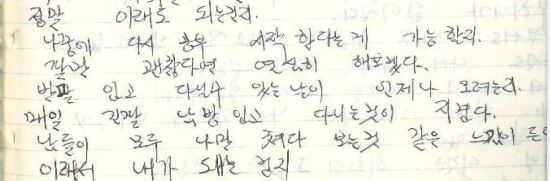 정말 이래도 되는건지.
나중에 다시 공부 시작 한다는게 가능할지.
정말 괜찮다면 열심히 해보겠다.
반팔 입고 다닐수 있는날이 언제나 오려는지.
매일 긴팔 입고 다니는것이 지겹다.
남들이 모두 나만 쳐다 보는것 같은 느낌이
이래서 내가 되는 건지